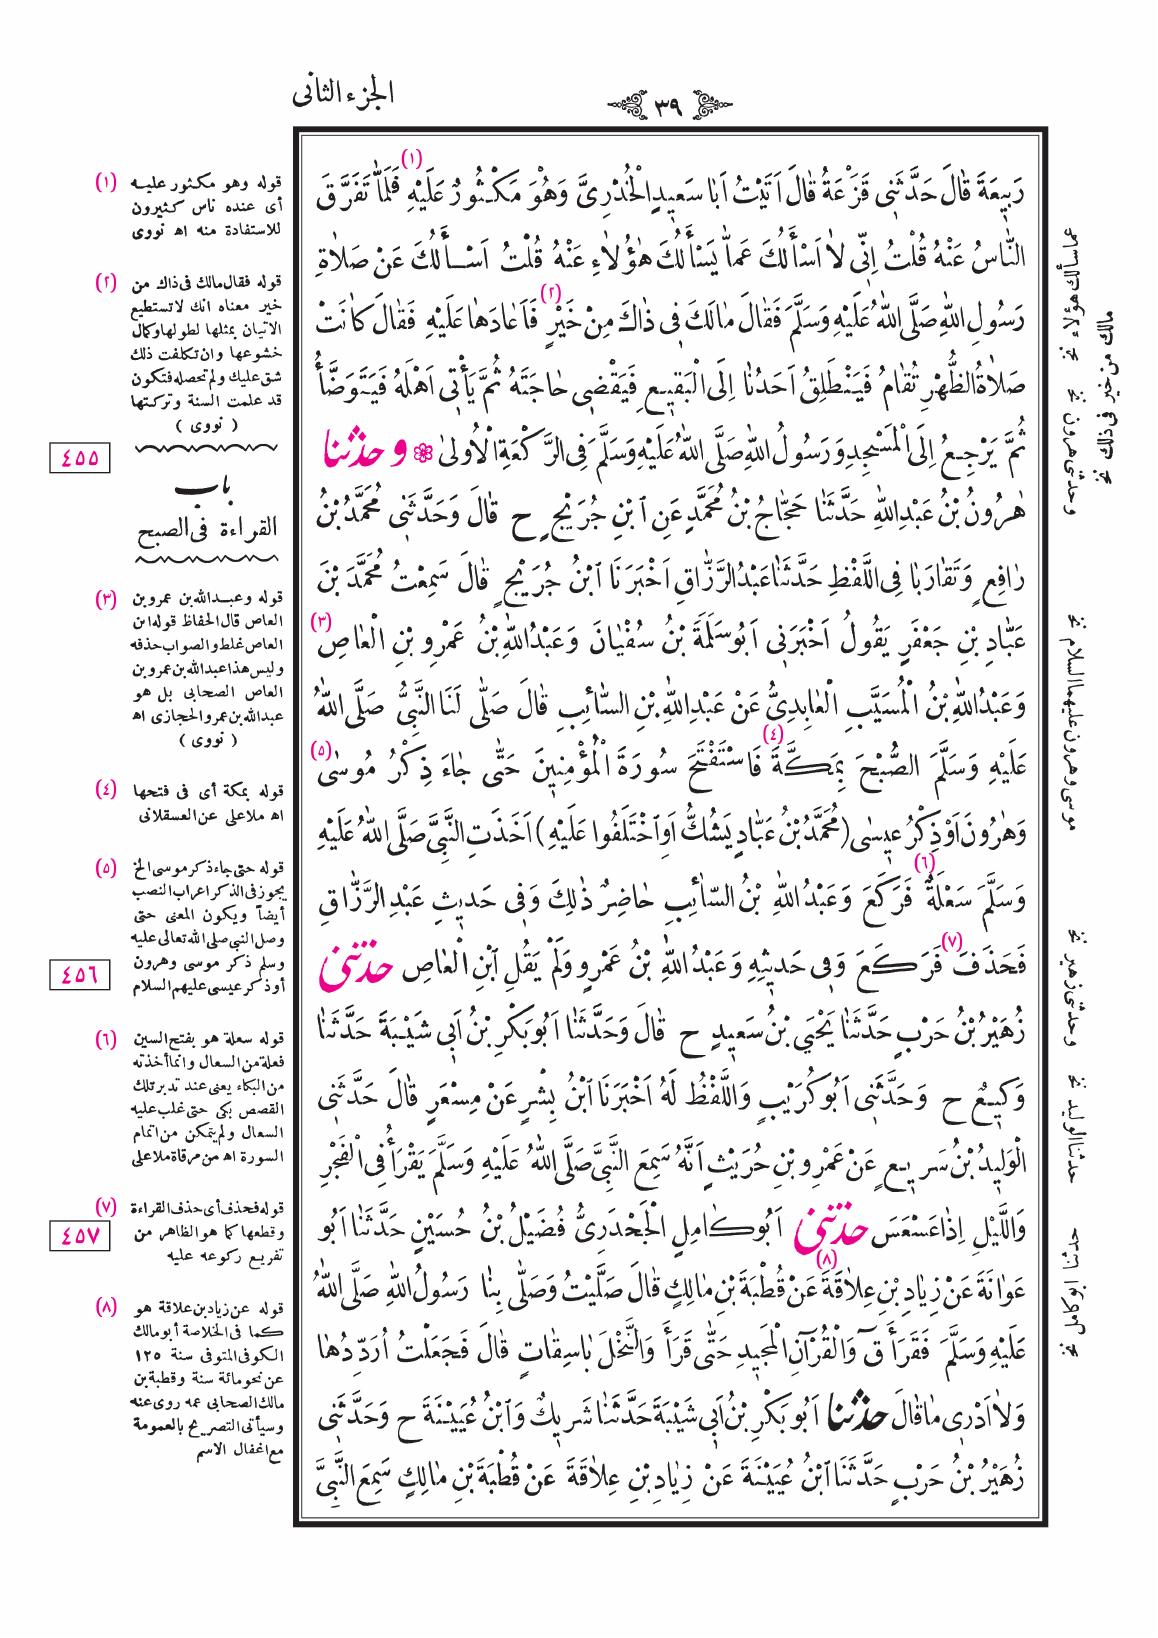 الجزء الثانى
٣٩
رَبِيعَةَ قَالَ حَدَّثَنِى قَزْعَةُ قَالَ اَتَيْتُ اَبَا سَعِيدٍ الْخُدْرِىَّ وَهُوَ مَكْثُورٌ عَلَيْهِ (١) فَلَمَّا تَفَرَّقَ
النَّاسُ عَنْهُ قُلْتُ اِنِّى لَا اَسْأَلُكَ عَمَّا يَسْأَلُكَ هٰؤُلَاءِ عَنْهُ قُلْتُ اَسْأَلُكَ عَنْ صَلَاةِ
رَسُولِ اللّٰهِ صَلَّى اللّٰهُ عَلَيْهِ وَسَلَّمَ فَقَالَ مَالَكَ فِى ذَاكَ مِنْ خَيْرٍ (٢) فَاَعَادَهَا عَلَيْهِ فَقَالَ كَانَتْ
صَلَاةُ الظُّهْرِ تُقَامُ فَيَنْطَلِقُ اَحَدُنَا اِلَى الْبَقِيعِ فَيَقْضِى حَاجَتَهُ ثُمَّ يَأْتِى اَهْلَهُ فَيَتَوَضَّأُ
ثُمَّ يَرْجِعُ اِلَى الْمَسْجِدِ وَرَسُولُ اللّٰهِ صَلَّى اللّٰهُ عَلَيْهِ وَسَلَّمَ فِى الرَّكْعَةِ الْاُولٰى ❁ و حدثنا
هٰرُونُ بْنُ عَبْدِ اللّٰهِ حَدَّثَنَا حَجَّاجُ بْنُ مُحَمَّدٍ عَنِ ابْنِ جُرَيْجٍ ح قَالَ وَحَدَّثَنِى مُحَمَّدُ بْنُ
رَافِعٍ وَتَقَارَبَا فِى اللَّفْظِ حَدَّثَنَا عَبْدُ الرَّزَّاقِ اَخْبَرَنَا ابْنُ جُرَيْجٍ قَالَ سَمِعْتُ مُحَمَّدَ بْنَ
عَبَّادِ بْنِ جَعْفَرٍ يَقُولُ اَخْبَرَنِى اَبُو سَلَمَةَ بْنُ سُفْيَانَ وَعَبْدُ اللّٰهِ بْنُ عَمْرِو بْنِ الْعَاصِ (٣)
وَعَبْدُ اللّٰهِ بْنُ الْمُسَيَّبِ الْعَابِدِىُّ عَنْ عَبْدِ اللّٰهِ بْنِ السَّائِبِ قَالَ صَلَّى لَنَا النَّبِىُّ صَلَّى اللّٰهُ
عَلَيْهِ وَسَلَّمَ الصُّبْحَ بِمَكَّةَ (٤) فَاسْتَفْتَحَ سُورَةَ الْمُؤْمِنِينَ حَتّٰى جَاءَ ذِكْرُ مُوسٰى (٥)
وَهٰرُونَ اَوْ ذِكْرُ عِيسٰى (مُحَمَّدُ بْنُ عَبَّادٍ يَشُكُّ اَوِ اخْتَلَفُوا عَلَيْهِ) اَخَذَتِ النَّبِىَّ صَلَّى اللّٰهُ عَلَيْهِ
وَسَلَّمَ سَعْلَةٌ (٦) فَرَكَعَ وَعَبْدُ اللّٰهِ بْنُ السَّائِبِ حَاضِرٌ ذٰلِكَ وَفِى حَدِيثِ عَبْدِ الرَّزَّاقِ
فَحَذَفَ (٧) فَرَكَعَ وَفِى حَدِيثِهِ وَعَبْدُ اللّٰهِ بْنُ عَمْرٍو وَلَمْ يَقُلِ ابْنِ الْعَاصِ حدثنى
زُهَيْرُ بْنُ حَرْبٍ حَدَّثَنَا يَحْيَى بْنُ سَعِيدٍ ح قَالَ وَحَدَّثَنَا اَبُو بَكْرِ بْنُ اَبِى شَيْبَةَ حَدَّثَنَا
وَكِيعٌ ح وَحَدَّثَنِى اَبُو كُرَيْبٍ وَاللَّفْظُ لَهُ اَخْبَرَنَا ابْنُ بِشْرٍ عَنْ مِسْعَرٍ قَالَ حَدَّثَنِى
الْوَلِيدُ بْنُ سَرِيعٍ عَنْ عَمْرِو بْنِ حُرَيْثٍ اَنَّهُ سَمِعَ النَّبِىَّ صَلَّى اللّٰهُ عَلَيْهِ وَسَلَّمَ يَقْرَأُ فِى الْفَجْرِ
وَاللَّيْلِ اِذَا عَسْعَسَ حدثنى اَبُو كَامِلٍ الْجَحْدَرِىُّ فُضَيْلُ بْنُ حُسَيْنٍ حَدَّثَنَا اَبُو
عَوَانَةَ عَنْ زِيَادِ بْنِ عِلَاقَةَ (٨) عَنْ قُطْبَةَ بْنِ مَالِكٍ قَالَ صَلَّيْتُ وَصَلَّى بِنَا رَسُولُ اللّٰهِ صَلَّى اللّٰهُ
عَلَيْهِ وَسَلَّمَ فَقَرَأَ قٓ وَالْقُرْآنِ الْمَجِيدِ حَتّٰى قَرَأَ وَالنَّخْلَ بَاسِقَاتٍ قَالَ فَجَعَلْتُ اُرَدِّدُهَا
وَلَا اَدْرِى مَا قَالَ حدثنا اَبُو بَكْرِ بْنُ اَبِى شَيْبَةَ حَدَّثَنَا شَرِيكٌ وَابْنُ عُيَيْنَةَ ح وَحَدَّثَنِى
زُهَيْرُ بْنُ حَرْبٍ حَدَّثَنَا ابْنُ عُيَيْنَةَ عَنْ زِيَادِ بْنِ عِلَاقَةَ عَنْ قُطْبَةَ بْنِ مَالِكٍ سَمِعَ النَّبِىَّ
عما سألك هؤلاء نخ
مالك من خير فى ذلك نخ
وحدثنى هرون نخ
موسى وهرون عليهما السلام نخ
وحدثنى زهير نخ
حدثنا الوليد نخ
(١) قوله وهو مكثور عليه
أى عنده ناس كثيرون
للاستفادة منه اه نووى
(٢) قوله فقال مالك فى ذاك من
خير معناه انك لا تستطيع
الاتيان بمثلها لطولها وكمال
خشوعها وان تكلفت ذلك
شق عليك ولم تحصله فتكون
قد علمت السنة وتركتها
( نووى )
٤٥٥
باب
القراءة فى الصبح
(٣) قوله وعبد الله بن عمرو بن
العاص قال الحفاظ قوله ابن
العاص غلط والصواب حذفه
وليس هذا عبد الله بن عمرو بن
العاص الصحابى بل هو
عبد الله بن عمرو الحجازى اه
( نووى )
(٤) قوله بمكة أى فى فتحها
اه ملا على عن العسقلانى
(٥) قوله حتى جاء ذكر موسى الخ
يجوز فى الذكر اعراب النصب
أيضاً ويكون المعنى حتى
وصل النبى صلى الله تعالى عليه
وسلم ذكر موسى وهرون
أو ذكر عيسى عليهم السلام
٤٥٦
(٦) قوله سعلة هو بفتح السين
فعلة من السعال وانما أخذته
من البكاء يعنى عند تدبر تلك
القصص بكى حتى غلب عليه
السعال ولم يتمكن من اتمام
السورة اه من مرقاة ملا على
(٧) قوله فحذف أى حذف القراءة
وقطعها كما هو الظاهر من
تفريع ركوعه عليه
٤٥٧
(٨) قوله عن زياد بن علاقة هو
كما فى الخلاصة أبو مالك
الكوفى المتوفى سنة ١٢٥
عن نحو مائة سنة وقطبة بن
مالك الصحابى عمه روى عنه
وسيأتى التصريح بالعمومة
مع اغفال الاسم